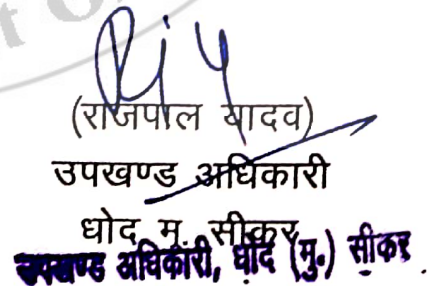 (राजपाल यादव)
उपखण्ड अधिकारी
धोद मु. सीकर
उपखण्ड अधिकारी, धोद (मु.) सीकर